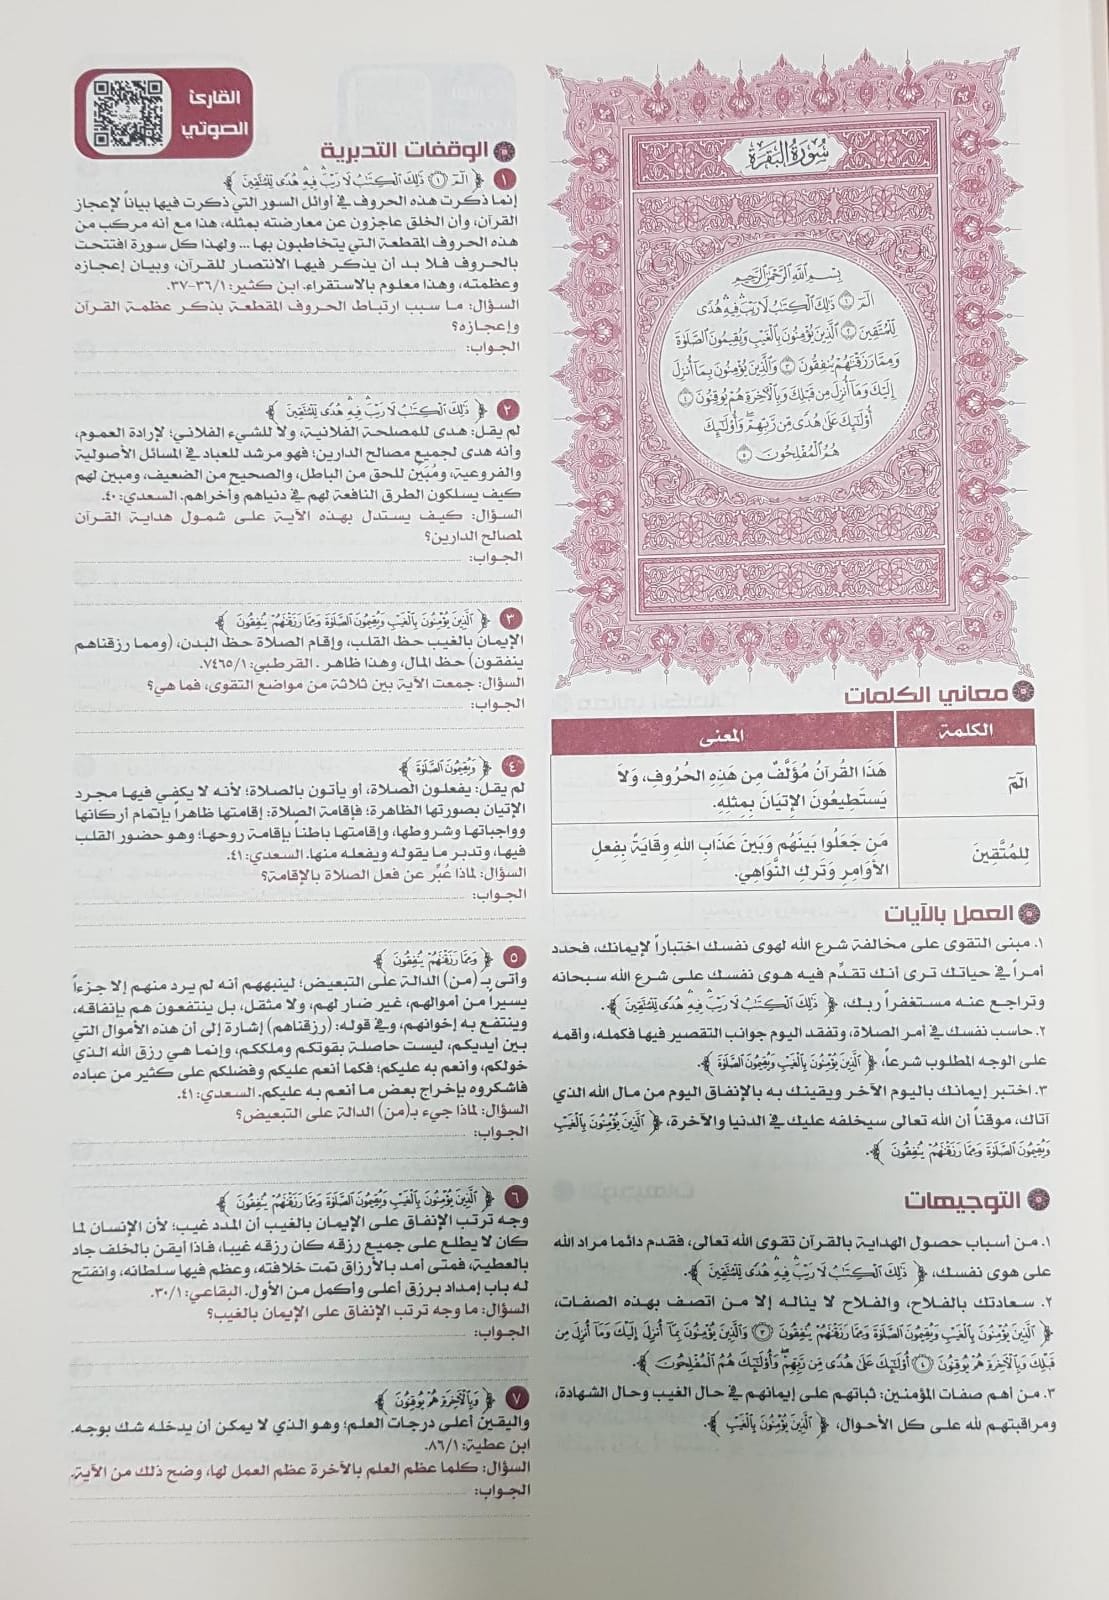 سُورَةُ البَقَرَةِ
بِسْمِ اللَّهِ الرَّحْمَٰنِ الرَّحِيمِ
الٓمٓ ١ ذَٰلِكَ ٱلْكِتَٰبُ لَا رَيْبَ ۛ فِيهِ ۛ هُدًى
لِّلْمُتَّقِينَ ٢ ٱلَّذِينَ يُؤْمِنُونَ بِٱلْغَيْبِ وَيُقِيمُونَ ٱلصَّلَوٰةَ
وَمِمَّا رَزَقْنَٰهُمْ يُنفِقُونَ ٣ وَٱلَّذِينَ يُؤْمِنُونَ بِمَآ أُنزِلَ
إِلَيْكَ وَمَآ أُنزِلَ مِن قَبْلِكَ وَبِٱلْءَاخِرَةِ هُمْ يُوقِنُونَ ٤
أُو۟لَٰٓئِكَ عَلَىٰ هُدًى مِّن رَّبِّهِمْ ۖ وَأُو۟لَٰٓئِكَ
هُمُ ٱلْمُفْلِحُونَ ٥
معاني الكلمات
الكلمة المعنى
الٓمٓ هَذَا القُرآنُ مُؤَلَّفٌ مِن هَذِهِ الحُرُوفِ، وَلاَ
يَستَطِيعُونَ الإِتيَانَ بِمِثلِهِ.
لِلمُتَّقِينَ مَن جَعَلُوا بَينَهُم وَبَينَ عَذَابِ اللهِ وِقَايَةً بِفِعلِ
الأَوَامِرِ وَتَركِ النَّوَاهِي.
العمل بالآيات
١. مبنى التقوى على مخالفة شرع الله لهوى نفسك اختباراً لإيمانك، فحدد
أمراً في حياتك ترى أنك تقدِّم فيه هوى نفسك على شرع الله سبحانه
وتراجع عنه مستغفراً ربك، ﴿ ذَٰلِكَ ٱلْكِتَٰبُ لَا رَيْبَ ۛ فِيهِ ۛ هُدًى لِّلْمُتَّقِينَ ﴾.
٢. حاسب نفسك في أمر الصلاة، وتفقد اليوم جوانب التقصير فيها فكمله، وأقمه
على الوجه المطلوب شرعاً، ﴿ ٱلَّذِينَ يُؤْمِنُونَ بِٱلْغَيْبِ وَيُقِيمُونَ ٱلصَّلَوٰةَ ﴾.
٣. اختبر إيمانك باليوم الآخر ويقينك به بالإنفاق اليوم من مال الله الذي
آتاك، موقناً أن الله تعالى سيخلفه عليك في الدنيا والآخرة، ﴿ ٱلَّذِينَ يُؤْمِنُونَ بِٱلْغَيْبِ
وَيُقِيمُونَ ٱلصَّلَوٰةَ وَمِمَّا رَزَقْنَٰهُمْ يُنفِقُونَ ﴾.
التوجيهات
١. من أسباب حصول الهداية بالقرآن تقوى الله تعالى، فقدم دائما مراد الله
على هوى نفسك، ﴿ ذَٰلِكَ ٱلْكِتَٰبُ لَا رَيْبَ ۛ فِيهِ ۛ هُدًى لِّلْمُتَّقِينَ ﴾.
٢. سعادتك بالفلاح، والفلاح لا يناله إلا من اتصف بهذه الصفات،
﴿ ٱلَّذِينَ يُؤْمِنُونَ بِٱلْغَيْبِ وَيُقِيمُونَ ٱلصَّلَوٰةَ وَمِمَّا رَزَقْنَٰهُمْ يُنفِقُونَ ٣ وَٱلَّذِينَ يُؤْمِنُونَ بِمَآ أُنزِلَ إِلَيْكَ وَمَآ أُنزِلَ مِن
قَبْلِكَ وَبِٱلْءَاخِرَةِ هُمْ يُوقِنُونَ ٤ أُو۟لَٰٓئِكَ عَلَىٰ هُدًى مِّن رَّبِّهِمْ ۖ وَأُو۟لَٰٓئِكَ هُمُ ٱلْمُفْلِحُونَ ﴾.
٣. من أهم صفات المؤمنين: ثباتهم على إيمانهم في حال الغيب وحال الشهادة،
ومراقبتهم لله على كل الأحوال، ﴿ ٱلَّذِينَ يُؤْمِنُونَ بِٱلْغَيْبِ ﴾.
القارئ
الصوتي
الوقفات التدبرية
١ ﴿ الٓمٓ ١ ذَٰلِكَ ٱلْكِتَٰبُ لَا رَيْبَ ۛ فِيهِ ۛ هُدًى لِّلْمُتَّقِينَ ﴾
إنما ذكرت هذه الحروف في أوائل السور التي ذكرت فيها بياناً لإعجاز
القرآن، وأن الخلق عاجزون عن معارضته بمثله، هذا مع أنه مركب من
هذه الحروف المقطعة التي يتخاطبون بها ... ولهذا كل سورة افتتحت
بالحروف فلا بد أن يذكر فيها الانتصار للقرآن، وبيان إعجازه
وعظمته، وهذا معلوم بالاستقراء. ابن كثير: ٣٦/١-٣٧.
السؤال: ما سبب ارتباط الحروف المقطعة بذكر عظمة القرآن
وإعجازه؟
الجواب:
٢ ﴿ ذَٰلِكَ ٱلْكِتَٰبُ لَا رَيْبَ ۛ فِيهِ ۛ هُدًى لِّلْمُتَّقِينَ ﴾
لم يقل: هدى للمصلحة الفلانية، ولا للشيء الفلاني؛ لإرادة العموم،
وأنه هدى لجميع مصالح الدارين؛ فهو مرشد للعباد في المسائل الأصولية
والفروعية، ومُبَيِّن للحق من الباطل، والصحيح من الضعيف، ومبين لهم
كيف يسلكون الطرق النافعة لهم في دنياهم وأخراهم. السعدي: ٤٠.
السؤال: كيف يستدل بهذه الآية على شمول هداية القرآن
لمصالح الدارين؟
الجواب:
٣ ﴿ ٱلَّذِينَ يُؤْمِنُونَ بِٱلْغَيْبِ وَيُقِيمُونَ ٱلصَّلَوٰةَ وَمِمَّا رَزَقْنَٰهُمْ يُنفِقُونَ ﴾
الإيمان بالغيب حظ القلب، وإقام الصلاة حظ البدن، (ومما رزقناهم
ينفقون) حظ المال، وهذا ظاهر . القرطبي: ٧٤٦٥/١.
السؤال: جمعت الآية بين ثلاثة من مواضع التقوى، فما هي؟
الجواب:
٤ ﴿ وَيُقِيمُونَ ٱلصَّلَوٰةَ ﴾
لم يقل: يفعلون الصلاة، أو يأتون بالصلاة؛ لأنه لا يكفي فيها مجرد
الإتيان بصورتها الظاهرة؛ فإقامة الصلاة: إقامتها ظاهراً بإتمام أركانها
وواجباتها وشروطها، وإقامتها باطناً بإقامة روحها؛ وهو حضور القلب
فيها، وتدبر ما يقوله ويفعله منها. السعدي: ٤١.
السؤال: لماذا عُبِّر عن فعل الصلاة بالإقامة؟
الجواب:
٥ ﴿ وَمِمَّا رَزَقْنَٰهُمْ يُنفِقُونَ ﴾
وأتى بـ (من) الدالة على التبعيض؛ لينبههم أنه لم يرد منهم إلا جزءاً
يسيرا من أموالهم، غير ضار لهم، ولا مثقل، بل ينتفعون هم بإنفاقه،
وينتفع به إخوانهم، وفي قوله: (رزقناهم) إشارة إلى أن هذه الأموال التي
بين أيديكم، ليست حاصلة بقوتكم وملككم، وإنما هي رزق الله الذي
خولكم، وأنعم به عليكم؛ فكما أنعم عليكم وفضلكم على كثير من عباده
فاشكروه بإخراج بعض ما أنعم به عليكم. السعدي: ٤١.
السؤال: لماذا جيء بـ(من) الدالة على التبعيض؟
الجواب:
٦ ﴿ ٱلَّذِينَ يُؤْمِنُونَ بِٱلْغَيْبِ وَيُقِيمُونَ ٱلصَّلَوٰةَ وَمِمَّا رَزَقْنَٰهُمْ يُنفِقُونَ ﴾
وجه ترتب الإنفاق على الإيمان بالغيب أن المدد غيب؛ لأن الإنسان لما
كان لا يطلع على جميع رزقه كان رزقه غيبا، فاذا أيقن بالخلف جاد
بالعطية، فمتى أمد بالأرزاق تمت خلافته، وعظم فيها سلطانه، وانفتح
له باب إمداد برزق أعلى وأكمل من الأول. البقاعي: ٣٠/١.
السؤال: ما وجه ترتب الإنفاق على الإيمان بالغيب؟
الجواب:
٧ ﴿ وَبِٱلْءَاخِرَةِ هُمْ يُوقِنُونَ ﴾
واليقين أعلى درجات العلم؛ وهو الذي لا يمكن أن يدخله شك بوجه.
ابن عطية: ٨٦/١.
السؤال: كلما عظم العلم بالآخرة عظم العمل لها، وضح ذلك من الآية.
الجواب: